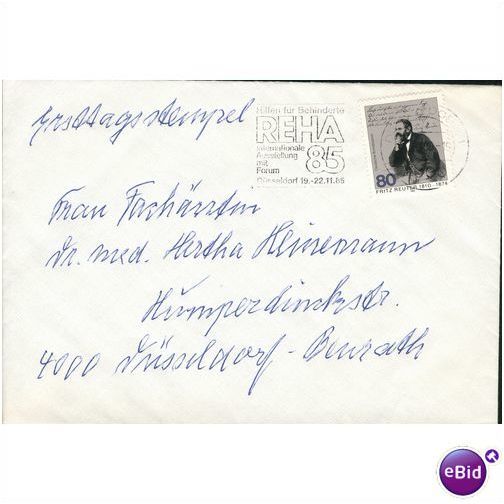 Ersttagsstempel
Hilfen für Behinderte
REHA
Internationale
Ausstellung
mit
Forum
85
Düsseldorf 19.-22.11.85
80
FRITZ REUTER 1810 - 1874
Frau Fachärztin
Dr. med. Hertha Heinemann
Humperdinckstr.
4000 Düsseldorf-Benrath
eBid